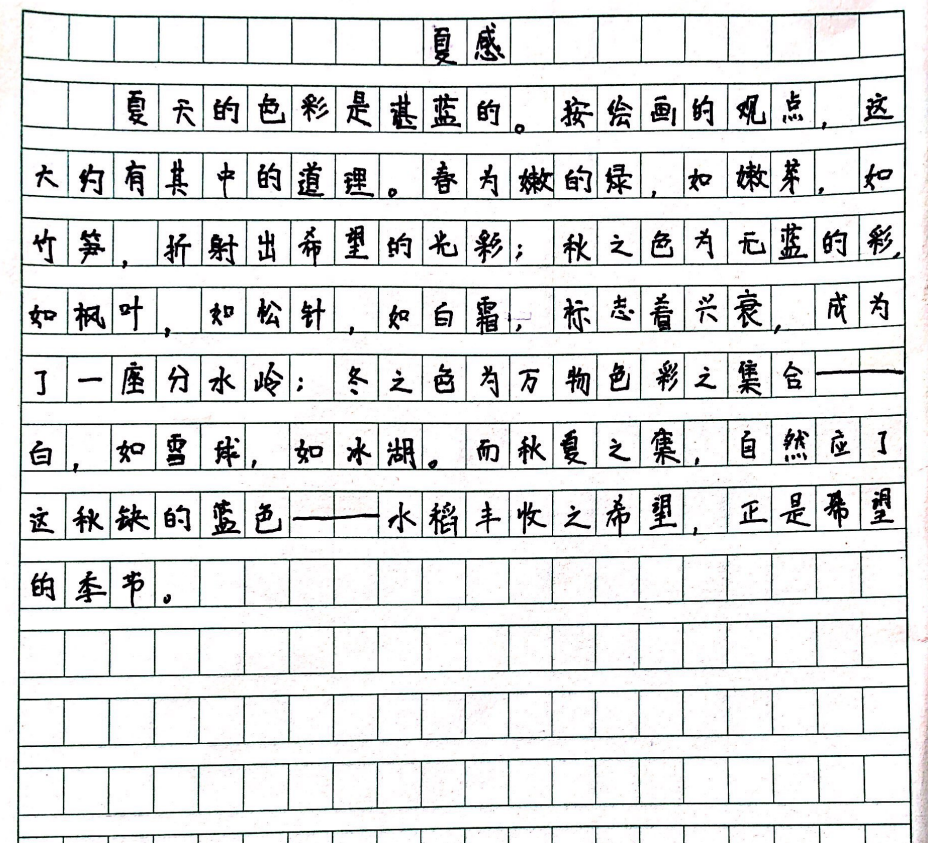 夏感
夏天的色彩是湛蓝的。按绘画的观点，这
大约有其中的道理。春为嫩的绿，如嫩芽，如
竹笋，折射出希望的光彩；秋之色为无蓝的彩，
如枫叶，如松针，如白霜，标志着兴衰，成为
了一座分水岭；冬之色为万物色彩之集合——
白，如雪球，如冰湖。而秋夏之集，自然应了
这秋缺的蓝色——水稻丰收之希望，正是希望
的季节。